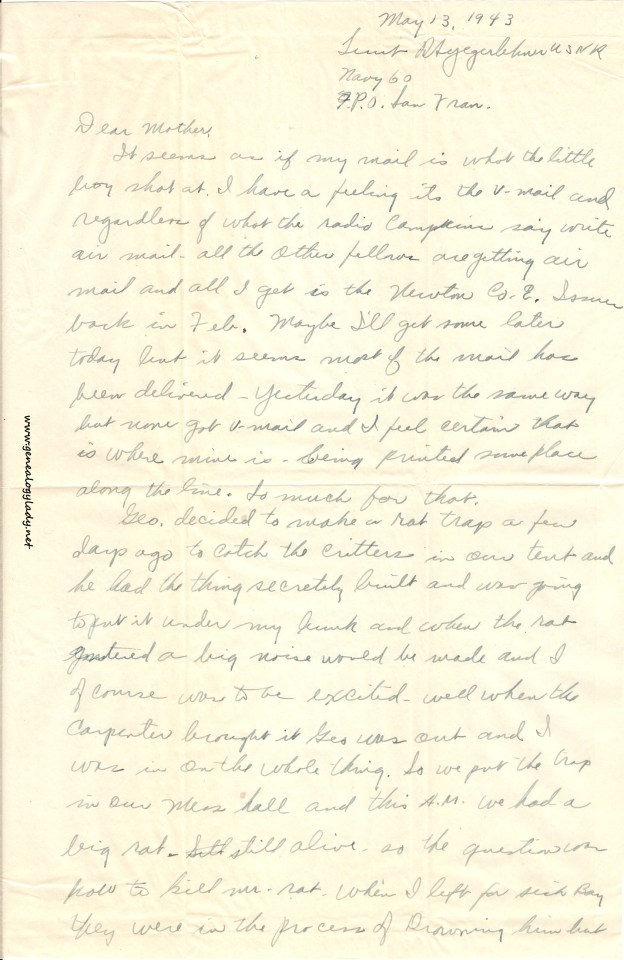 May 13, 1943
Lieut R Yegerlehner USNR
Navy 60
F.P.O. San Fran.
Dear Mother:
It seems as if my mail is what the little
boy shot at. I have a feeling its the V-mail and
regardless of what the radio says write
air mail - all the other fellows are getting air
mail and all I get is the Newton Co. E. Issues
back in Feb. Maybe I'll get some later
today but it seems most of the mail has
been delivered - Yesterday it was the same way
but none got V-mail and I feel certain that
is where mine is - being printed some place
along the line. So much for that.
Geo. decided to make a rat trap a few
days ago to catch the critters in our tent and
he had the thing secretely built and was going
to put it under my bunk and when the rat
entered a big noise would be made and I
of course was to be excited - well when the
carpenter brought it Geo was out and I
was in on the whole thing. So we put the trap
in our mess hall and this A.M. we had a
big rat - still alive - so the question was
how to kill mr. rat. When I left for sick bay
they were in the process of Drowning him but
www.genealogylady.net